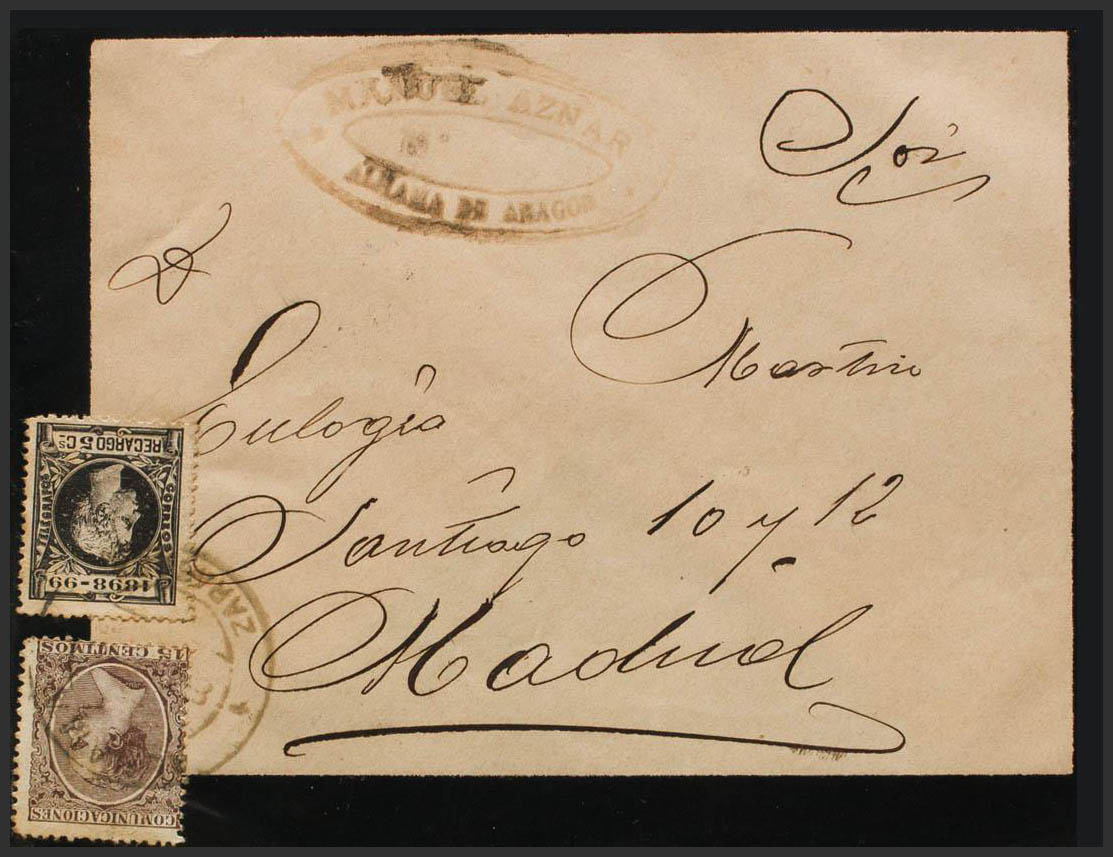 MANUEL AZNAR
ALHAMA DE ARAGON
Martin
Eulogia
Santiago 10 y 12
Madrid
RECARGO 5 Cs
CORREOS
TELEGRAFOS
1898-99
ZARA
15 CENTIMOS
COMUNICACIONES